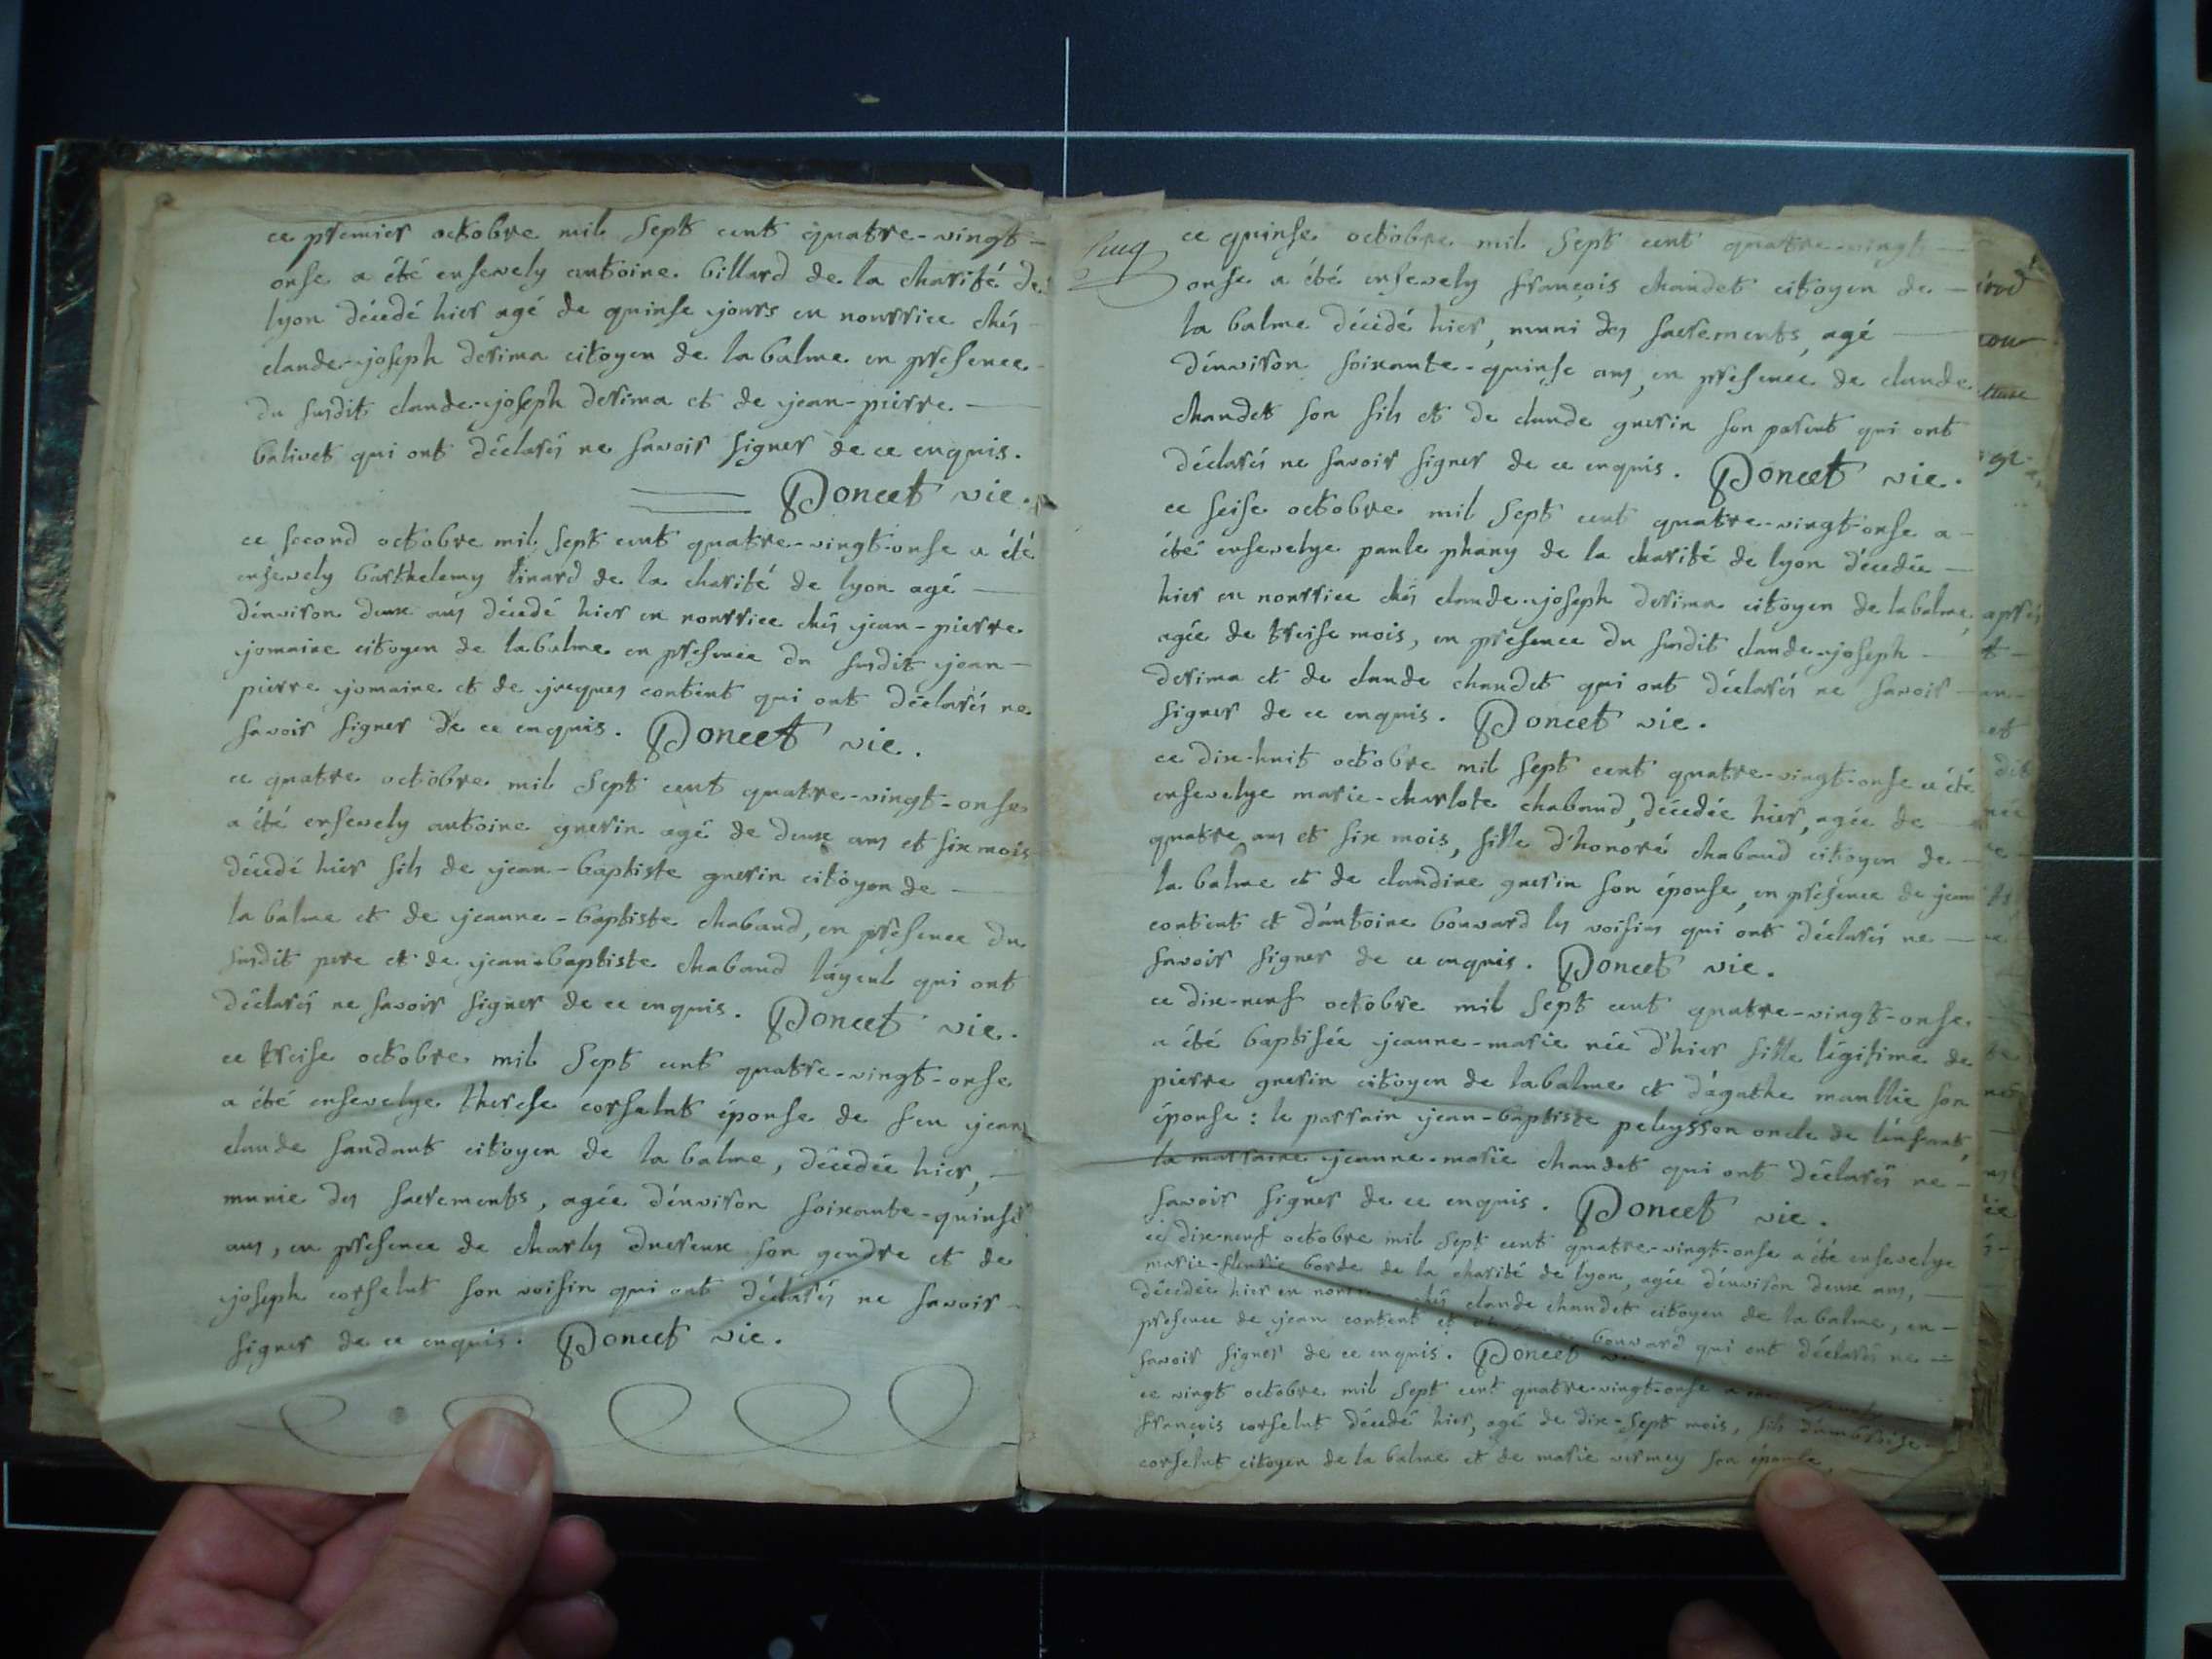 ce premier octobre mil sept cent quatre-vingt-
onse a été ensevely antoine billard de la charité de
lyon décédé hier agé de quinse jours en nourrice chés
claude-joseph derima citoyen de la balme en presence
du susdit claude-joseph derima et de jean-pierre
balivet qui ont déclarés ne savoir signer de ce enquis.
Poncet vic.
ce second octobre mil sept cent quatre-vingt-onse a été
ensevely barthelemy tinard de la charité de lyon agé
d'environ deux ans décédé hier en nourrice chés jean-pierre
jomaine citoyen de la balme en presence du susdit jean-
pierre jomaine et de jacques content qui ont déclarés ne
savoir signer de ce enquis. Poncet vic.
ce quatre octobre mil sept cent quatre-vingt-onse
a été ensevely antoine guerin agé de deux ans et six mois
décédé hier fils de jean-baptiste guerin citoyen de
la balme et de jeanne-baptiste chabaud, en presence du
susdit pere et de jean-baptiste chabaud l'ayeul qui ont
déclarés ne savoir signer de ce enquis. Poncet vic.
ce treise octobre mil sept cent quatre-vingt-onse
a été ensevelye therese corselut éponse de feu jean
claude fandant citoyen de la balme, décédée hier,
munie des sacrements, agée d'environ soixante-quinse
ans, en presence de charles ducreux son gendre et de
joseph corselut son voisin qui ont déclarés ne savoir
signer de ce enquis. Poncet vic.
ce quinse octobre mil sept cent quatre-vingt
onse a été ensevely françois chandet citoyen de
la balme décédé hier, muni des sacrements, agé
d'environ soixante-quinse ans, en presence de claude
chandet son fils et de claude guerin son parent qui ont
déclarés ne savoir signer de ce enquis. Poncet vic.
ce seise octobre mil sept cent quatre-vingt-onse a
été ensevelye paule phany de la charité de lyon décédée
hier en nourrice chés claude-joseph derima citoyen de la balme,
agée de treise mois, en presence du susdit claude-joseph
derima et de claude chandet qui ont déclarés ne savoir
signer de ce enquis. Poncet vic.
ce dix-huit octobre mil sept cent quatre-vingt-onse a été
ensevelye marie-charlote chabaud, décédée hier, agée de
quatre ans et six mois, fille d'honoré chabaud citoyen de
la balme et de claudine guerin son éponse, en présence de jean
content et d'antoine bouvard les voisins qui ont déclarés ne
savoir signer de ce enquis. Poncet vic.
ce dix-neuf octobre mil sept cent quatre-vingt-onse
a été baptisée jeanne-marie née d'hier fille légitime de
pierre guerin citoyen de la balme et d'agathe maullie son
éponse : le parrain jean-baptiste peleysson oncle de l'enfant,
la marraine jeanne-marie chandet qui ont déclarés ne
savoir signer de ce enquis. Poncet vic.
ce dix-neuf octobre mil sept cent quatre-vingt-onse a été ensevelye
marie-fleurie borde de la charité de lyon, agée d'environ deux ans,
décédée hier en chés claude chandet citoyen de la balme, en
presence de jean content et bouvard qui ont déclarés ne
savoir signer de ce enquis. Poncet
ce vingt octobre mil sept cent quatre-vingt-onse a
françois corselut décédé hier, agé de dix-sept mois, fils d'ambroise
corselut citoyen de la balme et de marie vermey son éponse,